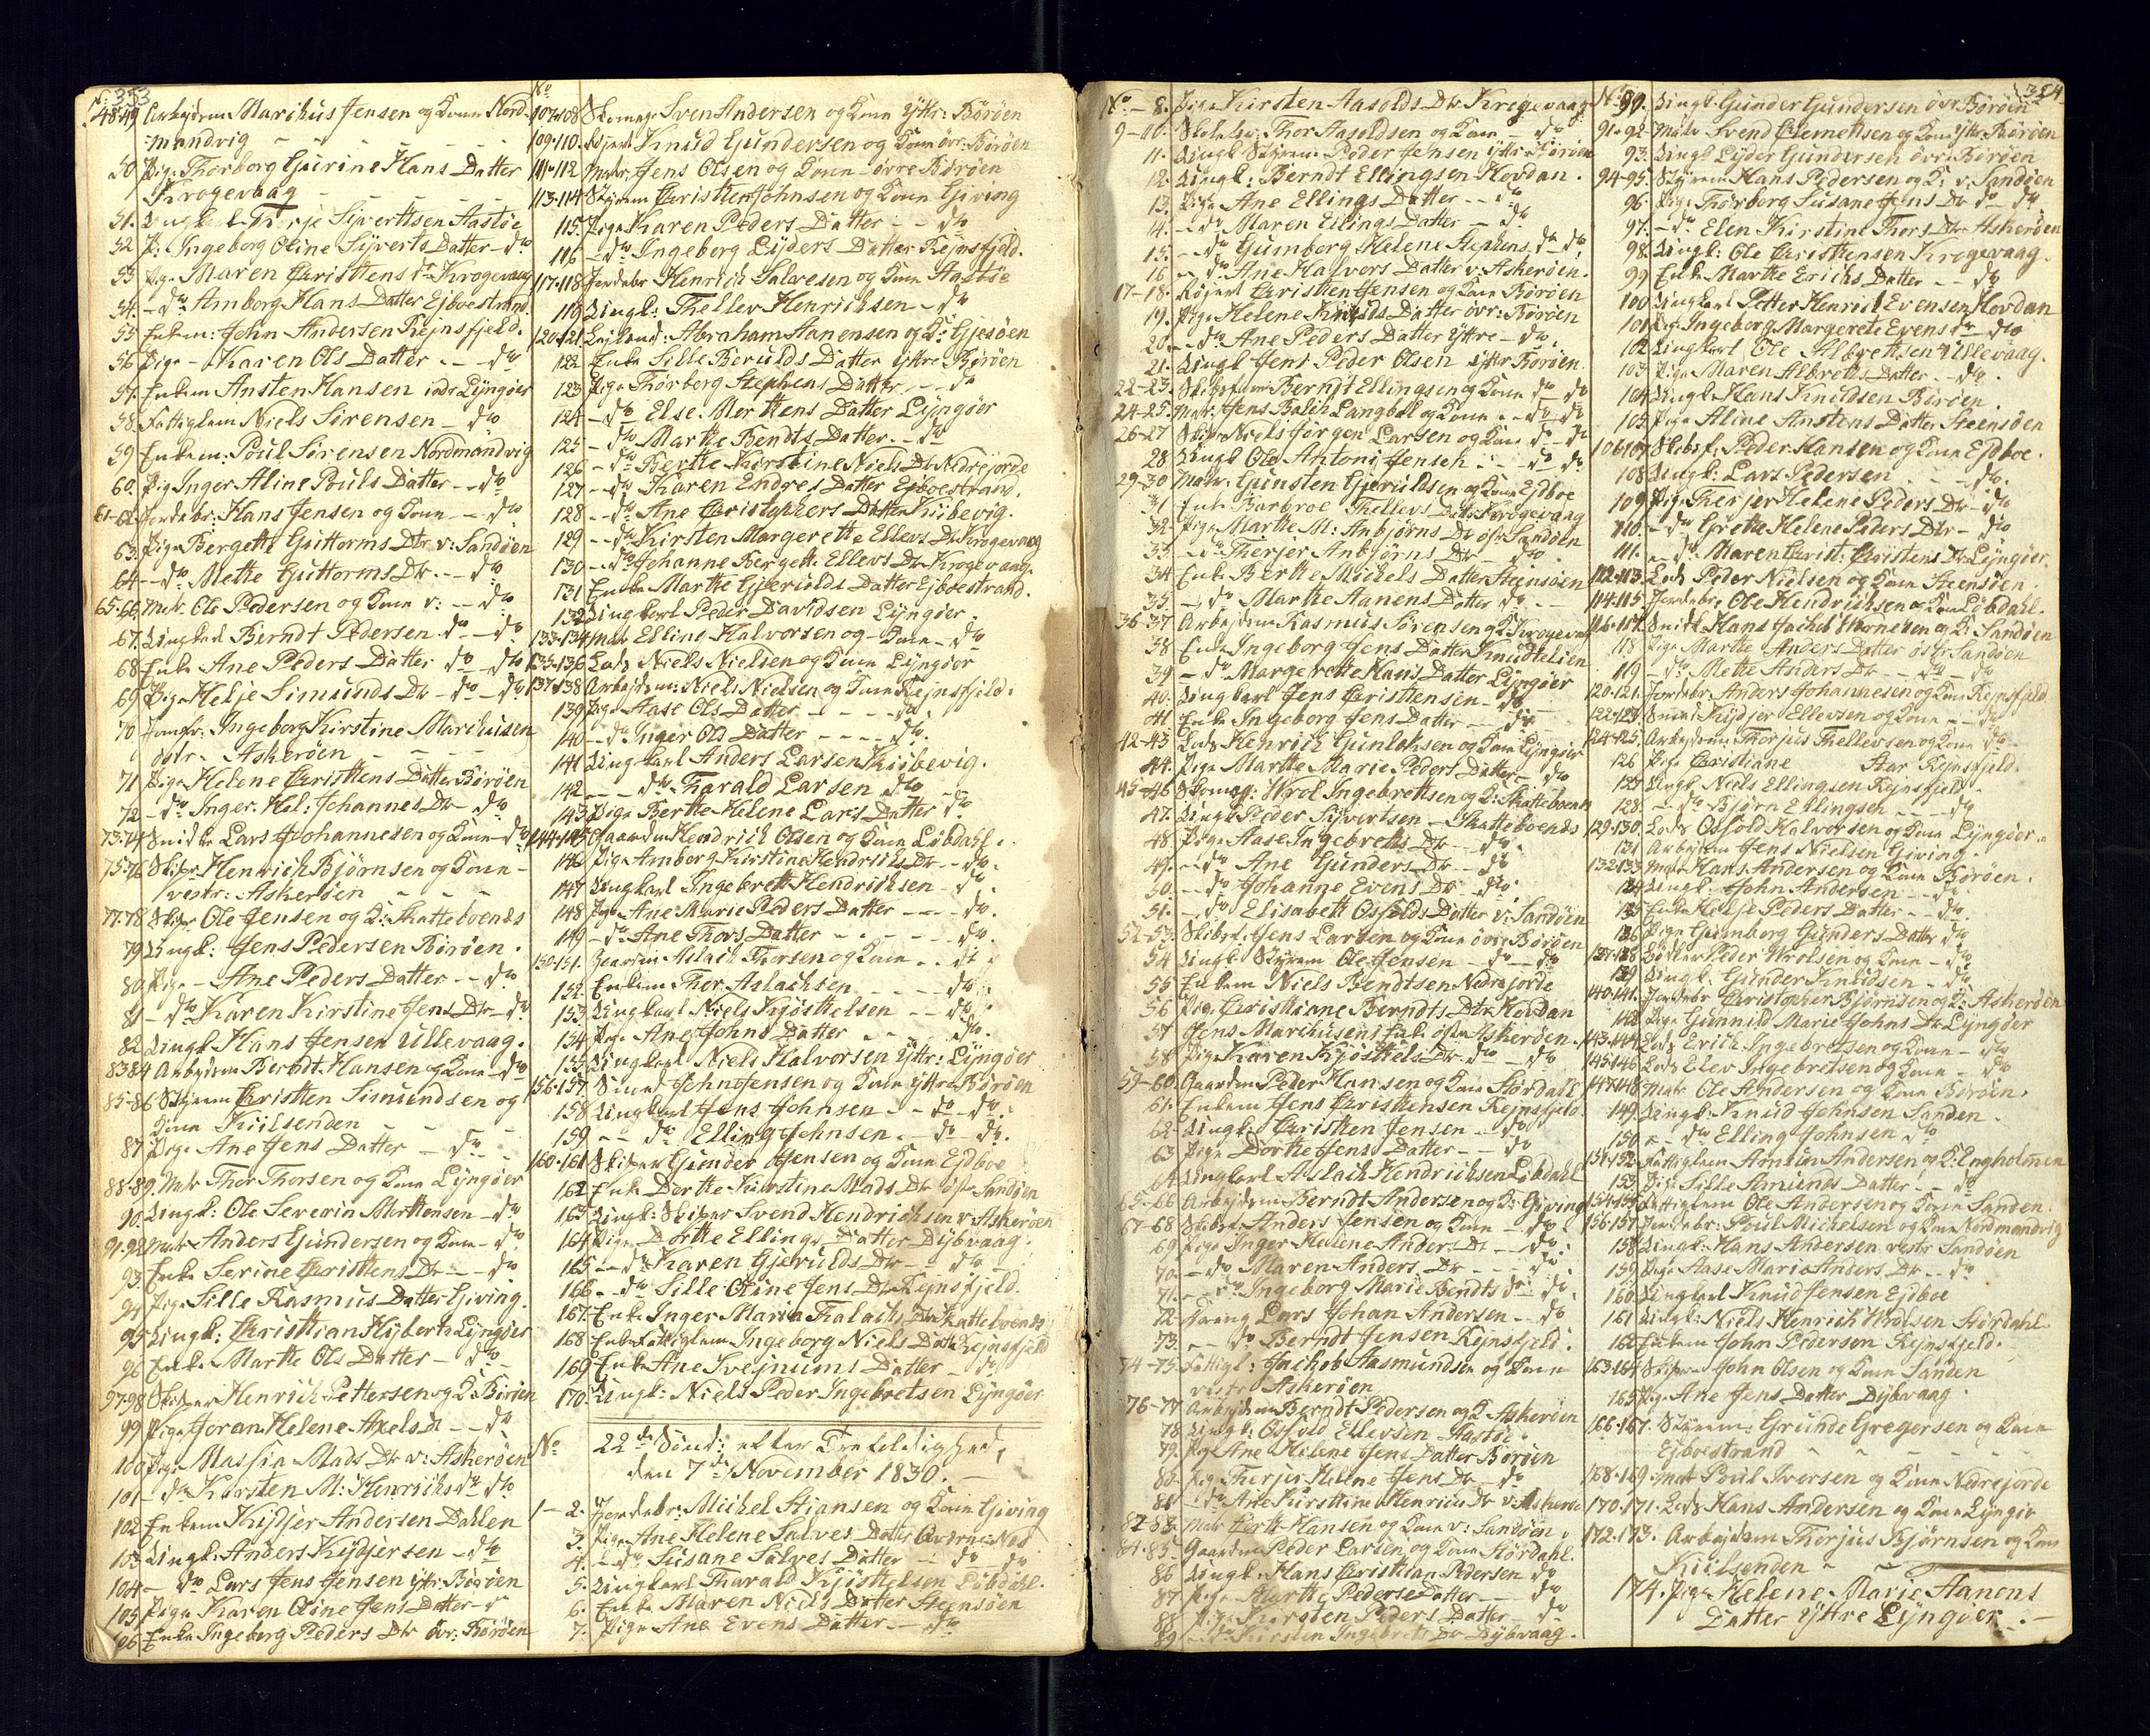 353
No
48-49 Arbejdsm Marchus Jensen og Kone Nord-
mandvig - - - -
50 Pige Thorborg Gurine Hans Datter
Krogevaag - - - -
51. Ungkarl Terje Sijverttsen Aastøe
52 P: Ingeborg Oline Sijverts Datter - do
53 Pige Maren Christtens dr Krogevaag
54. - do Amborg Hans Datter Ejboestrand
55 Enkem: John Andersen Rejnsfjeld.
56 Pige - Karen Ols Datter - - do
57. Enkem Ansten Hansen indr Lyngøer
58. Fattiglem Niels Sørensen - do
59 Enkem: Poul Sørensen Nordmandvig
60. Pig Inger Aline Pouls Datter - do
61-62. Jordebr: Hans Jensen og Kone - do
63. Pige Bergette Guttorms Dtr v: Sandøen
64 - do Mette Guttorms Dtr. - - do
65-66. Matr. Ole Pedersen og Kone v: - do
67. Ungkarl Berndt Pedersen do - do
68 Enke Ane Peders Datter do - do
69 Pige Helje Simunds Dtr - do - do
70 Jomfr: Ingeborg Kirstine Marchusen
østr. Askerøen - - -
71 Pige Helene Christtens Datter Borøen
72 - do Inger Hel: Johannes Dtr - do
73-74 Snidkr Lars Johannesen og Kone - do
75-76 Skiper Henrich Bjørnsen og Kone -
vestr: Askerøen - - -
77-78 Skiper Ole Jensen og K: Skatteboenes
79 Ungk: Jens Pedersen Borøen.
80 Pige - Ane Peders Datter - - do
81 - do Karen Kirstine Jens Dtr - do
82 Ungk Hans Jensen Ullevaag.
83-84 Arbejdsm Berndt Hansen og Kone - do
85-86 Styrem Christten Simundsen og
Kone Kiilsenden - - -
87 Pige Ane Jens Datter - do -
88-89. Matr Thor Thorsen og Kone Lyngøer
90. Ungk: Ole Severin Morttensen - do
91-92 Matr Anders Gundersen og Kone - do
93 Enke Serine Christtens Dtr - - do
94 Pige Sille Rasmus Datter Giving.
95 Ungk: Christtian Hybertz Lyngøer
96 Enke Marthe Ols Datter - do -
97-98 Skiper Henrich Pettersen og K: Borøen
99 Pige Joran Helene Axels d - - do
100 Pige Massia Mads Dtr v: Askerøen
101 - do Kirsten M: Henrichs dr do
102 Enkem Kydjer Andersen Dahlen
103 Ungk: Anders Kydjersen - do
104 - do Lars Jens Jensen ytr: Borøen
105 Pige Karen Oline Jens Datter - do
106 Enke Ingeborg Peders Dtr övr: Borøen
No
107-108 Skomagr Sven Andersen og Kone Yttr: Borøen
109-110. Röjert Knud Gundersen og Kone övr: Borøen
111-112 Matr, Jens Olsen og Kone - övre Borøen
113-114 Styrem Christten Johnsen og Kone Giving
115. Pige Karen Peders Datter - - do
116 - do Ingeborg Lyders Datter Rejnsfjeld.
117-118 Jordebr Henrich Salvesen og Kone Aastøe
119 Ungk: Thellev Henrichsen - do
120-121 Lejlend: Abraham Aanensen og K: Gjesøen
122 Enke Sille Beruldsdatter Yttre Borøen
123 Pige Thorborg Stephens Datter - - do
124 - do Else Merttens Datter Lyngøer
125 - do Marthe Bendts Datter. - - do
126 - do Berthe Kirstine Niels Dtr Nedrejorde
127 - do Karen Endres Datter Ejboestrand.
128 - - do Ane Christophers Datter Kribevig.
129 - - do Kirsten Margerette Ellevs Dtr Krogevaag
130 - do Johanne Bergette Ellevs Dtr Krogevaag
131 Enke Marthe Gjeruldsdatter Ejboestrand.
132 Ungkarl Peder Davidsen Lyngøer
133-134 Matr Elling Halvorsen og Kone - do
135-136 Lods Niels Nielsen og Kone Lyngøer
137-138 Arbejdsm: Niels Nielsen og Kone Rejnsfjeld.
139 Pige Aase Ols Datter - - - - do
140 - do Inger Ols Datter - - - - do.
141 Ungkarl Anders Larsen Kribevig.
142 - - - do Tarald Larsen do
143 Pige Berthe Helene Lars Datter do
144-145 Gaardm Hendrich Olsen og Kone Løbdahl.
146 Pige Amborg Kirstine Hendrichs Dtr - - do.
147 Ungkarl Ingebrett Hendrichsen - do.
148 Pige Ane Marie Peders Datter - - - do.
149 - do Ane Thors Datter - - - - - do.
150-151. Gaardm Aslach Thorsen og Kone - . do
152. Enkem Thor Aslachsen - - - - do
153 Ungkarl Niels Kjøsttelsen - - do
154 Pige Ane Johns Datter - - - do.
155 Ungkarl Niels Halvorsen Yttr: Lyngøer
156-157. Smed John Jensen og Kone yttre Borøen
158 Ungkarl Jens Johnsen - - do - do.
159 - - do Elling Johnsen. - do do.
160-161 Skiper Gunder Jensen og Kone Ejdboe
162 Enke Dorthe Kirstine Mads Dtr östr Sandøen
163 Ungk: Skiper Svend Hendrichsen v: Askerøen
164 Pige Dorthe Ellings Datter Dybvaag.
165 - - do Karen Gjerulds Dtr - - do
166 - - do Sille Oline Jens Dtr Rejnsfjeld.
167. Enke Inger Maria Falachs Dtr Skatteboenes
168 Enke Fattiglem Ingeborg Niels Datter Rejnsfjeld
169 Enke Ane Svejnums Datter - do
170. Ungk: Niels Peder Ingebretsen Lyngøer
No 22de Sönd: efter Trefoldighed,
den 7de November 1830. -
1-2. Jordebr: Michel Stiansen og Kone Giving
3. Pige Ane Helene Salves Datter Qverne Nes
4. - do Susane Salves Datter - do - do
5. Ungkarl Tharald Kjösttelsen Löbdahl.
6. Enke Maren Niels Datter Steensøen
7. Pige Ane Evens Datter - do
354
No - 8. Pige Kirsten Aasolds Dtr Krogevaag
9-10. Skolelr: Thor Aasoldsen og Kone - do
11. Ungk Styrem Peder Jensen yttr Borøen
12. Ungk: Berndt Ellingsen Hovdan.
13. Pige Ane Ellings Datter - - do
14. - do Maren Ellings Datter - do
15. - do Gumborg Helene Stephens dr do
16 - do Ane Halvors Datter v: Askerøen.
17-18. Röjert Christten Jensen og Kone Borøen
19. Pige Helene Knuds Datter övr: Borøen
20. - do Ane Peders Datter Yttre - do.
21. Ungk Jens Peder Olsen Yttr Borøen.
22-23. Skibsfører Berndt Ellingsen og Kone do do
24-25. Matr: Jens Balch Langbel og Kone - do do
26-27 Skiper Niels Jörgen Larsen og Kone do - do
28 Ungk Ole Antoni Jensen - - do do
29-30 Matr: Gunsten Gjeruldsen og Kone Ejdboe
31 Enke Barbroe Thellevs Datter Krogevaag
32 Pige Marthe M: Anbjørns Dtr östr Sandøen
33 - do Therjer Anbjørns Dtr - do
34 Enke Berthe Michels Datter Steensøen
35. - do Marthe Aanens Datter do -
36-37 Arbejdsm Rasmus Sørensen og K: Krogevaag
38 Enke Ingeborg Jens Datter Knudtelien
39 - do Margerette Hans Datter Lyngøer
40. Ungkarl Jens Christtensen - do
41 Enke Ingeborg Jens Datter - - do
42-43 Lods Henrich Gunlaksen og Kone Lyngøer
44. Pige Marthe Marie Peders Datter - do
45-46 Skomagr: Wrol Ingebrettsen og K: Skatteboenes
47. Ungk Peder Sijvertsen - Skatteboenes
48 Pige Aase Ingebretts Dtr - - do.
49. - do Ane Gunders Dtr - - do
50. - - do Johanne Evens Dtr - do
51. - do Elisabett Osfolds Datter v: Sandøen
52-53. Skibsf: Jens Larsen og Kone övre Borøen
54 Ungk Styrem Ole Jensen - do - do
55 Enkem Niels Bendtsen Nedrejorde
56 Pige Christtiane Berndts Dtr Hovdan
57 Jens Marchusen östr Askerøen.
58 Pige Karen Kjösttels Dtr - do - do
59-60. Gaardm Peder Hansen og Kone Stördahl
61. Enkem Jens Christtensen Rejnsfjeld.
62 Ungk: Christten Jensen - - do
63 Pige Dorthe Jens Datter - - do
64 Ungkarl Aslach Hendrichsen Löbdahl
65-66 Arbejdsm Berndt Andersen og K: Giving
67-68 Skibsf Anders Jensen og Kone - - do
69 Pige Inger Helene Anders Dr - - do.
70. - do Maren Anders Dr - - - do
71. - - do Ingeborg Marie Bendts dr do
72 Dreng Lars Johan Andersen - - do
73. - - do Berndt Jensen Rejnsfjeld.
74-75. Fattigl: Jachob Aasmundsen og Kone
vestr Askerøen
76-77 Arbejdsm Berndt Pedersen og K Askerøen
78. Ungk: Osfold Ellevsen Aastøe
79. Pige Ane Helene Jens Datter Borøen
80. Pige Therjer Helene Jens Dtr - do
81 - do Ane Kirsttine Henrics Dtr v: Askerøe
82-83 Matr Hansen og Kone v: Sandøen.
84-85 Gaardm Peder Larsen og Kone Stördahl.
86 Ungk: Hans Christtian Pedersen do
87 Pige Marthe Peders Datter - - do
88 Pige Kirsten Peders Datter - do
89 - do Kirsten Ingebretts Dtr Dybvaag.
No 90. Ungk: Gunder Gundersen övr Borøen
91-92 Matr Svend Clemettsen og Kone Yttr Borøen
93. Ungk Lyder Gundersen övr: Borøen
94-95. Styrem Hans Pedersen og K: v: Sandøen
96. Pige Thorborg Susane Jens Dtr do - do
97. - do Elen Kirstine Thors Dtr Askerøen
98. Ungk: Ole Christtensen Krogevaag.
99 Enke Marthe Erichs Datter - - do
100 Ungkarl Petter Henrich Evensen Hovdan
101 Pige Ingeborg Margerete Evens dr - do
102 Ungkarl Ole Albrettsen Ullevaag.
103 Pige Maren Albretts Datter - do
104 Ungk Hans Knudsen Borøen.
105 Pige Aline Anstens Datter Steensøen
106-107 Skibsf: Peder Hansen og Kone Ejdboe.
108 Ungk: Lars Pedersen - - - do.
109 Pige Therjer Helene Peders Dtr - do
110. - do Grethe Helene Peders Dtr - do
111. - do Maren Christ: Christens Dtr Lyngøer.
112-113. Lods Peder Nielsen og Kone Steensøen.
114-115 Jordebr: Ole Hendrichsen og Kone Löbdahl.
116-117. Snidk Hans Jachob Wernersen og K: Sandøen
118 Pige Marthe Anders Datter östr Sandøen
119 - do Mette Anders Dr - do - do
120-121. Jordebr: Anders Johannesen og Kone Rejnsfjeld
122-123. Smed Kydjer Ellevsen og Kone - - do
124-125. Arbejdsm: Thorjus Thellevsen og Kone do
126 Pige Christiane Aar Rejnsfjeld.
127 Ungk. Niels Ellingsen Rejnsfjeld
128 - - do Bjørn Ellingsen - - - do
129-130. Lods Osfold Halvorsen og Kone Lyngøer.
131 Arbejdsm Jens Nielsen Giving.
132-133 Matr Hans Andersen og Kone Borøen.
134 Ungk: John Andersen - - do
135 Enke Helje Peders Datter - - do
136 Pige Gumborg Gunders Datter do
137-138 Bödker Peder Wrolsen og Kone - do
139 Ungk: Gunder Knudsen - do
140-141. Jordebr Christopher Bjørnsen og K: Askerøen
142 Pige Gunnild Marie Johns Dr Lyngøer
143-144 Lods Erich Ingebretsen og Kone - do
145-146 Lods Elev Ingebretsen og Kone - do
147-148 Matr Ole Andersen og Kone Borøen.
149. Ungk: Knud Johnsen Sanden.
150 - - do Elling Johnsen do
151-152 Fattiglem Amun Andersen og K: Engholmen
153. Pige Sille Amunds Datter - - do
154-155 Fattiglem Ole Andersen og Kone Sanden.
156-157 Jordebr: Poul Michelsen og Kone Nordmandvig
158 Ungk: Hans Andersen vestr Sandøen
159. Pige Aase Maria Anders Dr - - do
160. Ungkarl Knud Jensen Ejdboe
161 Ungk: Niels Henrich Wrolsen Stördahl
162 Enkem John Pedersen Rejnsfjeld.
163-164 Skiper John Olsen og Kone Sanden
165 Pige Ane Jens Datter Dybvaag.
166-167. Styrem: Grunde Gregersen og Kone
Ejboestrand - - - -
168-169. Matr Poul Iversen og Kone Nedrejorde
170-171. Lods Hans Andersen og Kone Lyngør
172-173. Arbejdsm Thorjus Bjørnsen og Kone
Kiilsenden - -
174. Pige Helene Marie Aanens
Datter Yttre Lyngøer. -